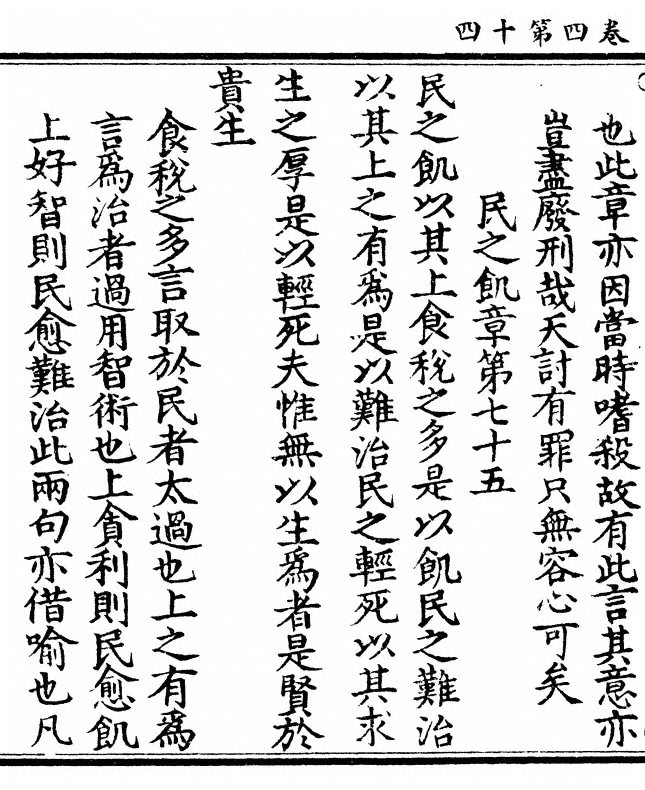 卷四第十四
也此章亦因當時嗜殺故有此言其意亦
豈盡廢刑哉天討有罪只無容心可矣
民之飢章第七十五
民之飢以其上食稅之多是以飢民之難治
以其上之有爲是以難治民之輕死以其求
生之厚是以輕死夫惟無以生爲者是賢於
貴生
食稅之多言取於民者太過也上之有爲
言爲治者過用智術也上貪利則民愈飢
上好智則民愈難治此兩句亦借喻也凡